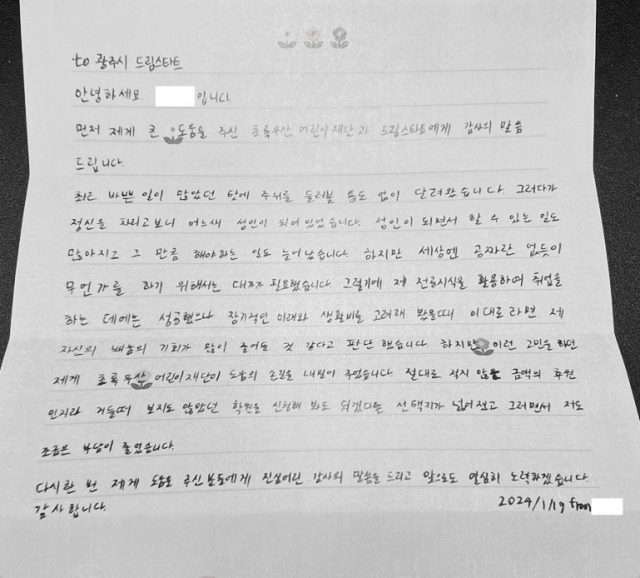 to 광주시 드림스타트
안녕하세요. 입니다.
먼저 제게 큰 도움을 주신 초록우산 어린이재단과 드림스타트에게 감사의 말씀
드립니다.
최근 바쁜 일이 많았던 탓에 주위를 둘러볼 틈도 없이 달려왔습니다. 그러다가
정신을 차리고보니 어느새 성인이 되어 있었습니다. 성인이 되면서 할 수 있는 일도
많아지고 그 만큼 해야하는 일도 늘어났습니다. 하지만 세상엔 공짜란 없듯이
무언가를 하기 위해서는 대가가 필요했습니다. 그렇기에 제 전공지식을 활용하며 취업을
하는 데에는 성공했으나 장기적인 미래와 생활비를 고려해 봤을때 이대로라면 제
자신의 배움의 기회가 많이 줄어들 것 같다고 판단했습니다. 하지만 이런 고민을 하던
제게 초록우산 어린이재단이 도움의 손길을 내밀어 주었습니다. 절대로 적지 않은 금액의 후원
인지라 거들떠 보지도 않았던 학원을 신청해 봐도 되겠다는 선택지가 넓어졌고 그러면서 저도
조금은 부담이 줄었습니다.
다시한 번 제게 도움을 주신분들에게 진심어린 감사의 말씀을 드리고 앞으로도 열심히 노력하겠습니다
감사합니다. 2024/1/19 from